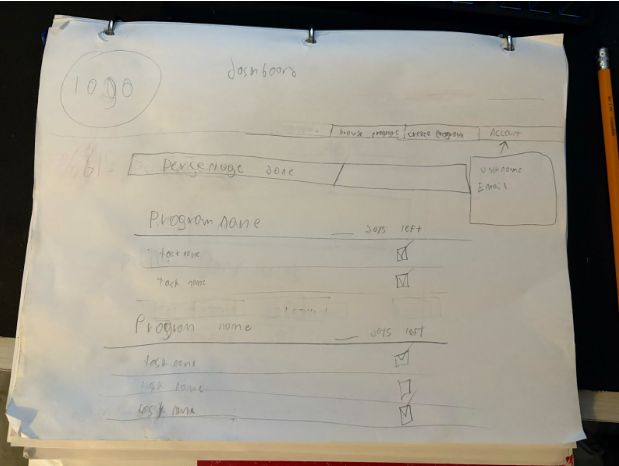 logo
dashboard
browse programs create program Account
username
Email
Percentage done
Program name __ days left
task name
task name
Program name __ days left
task name
task name
task name